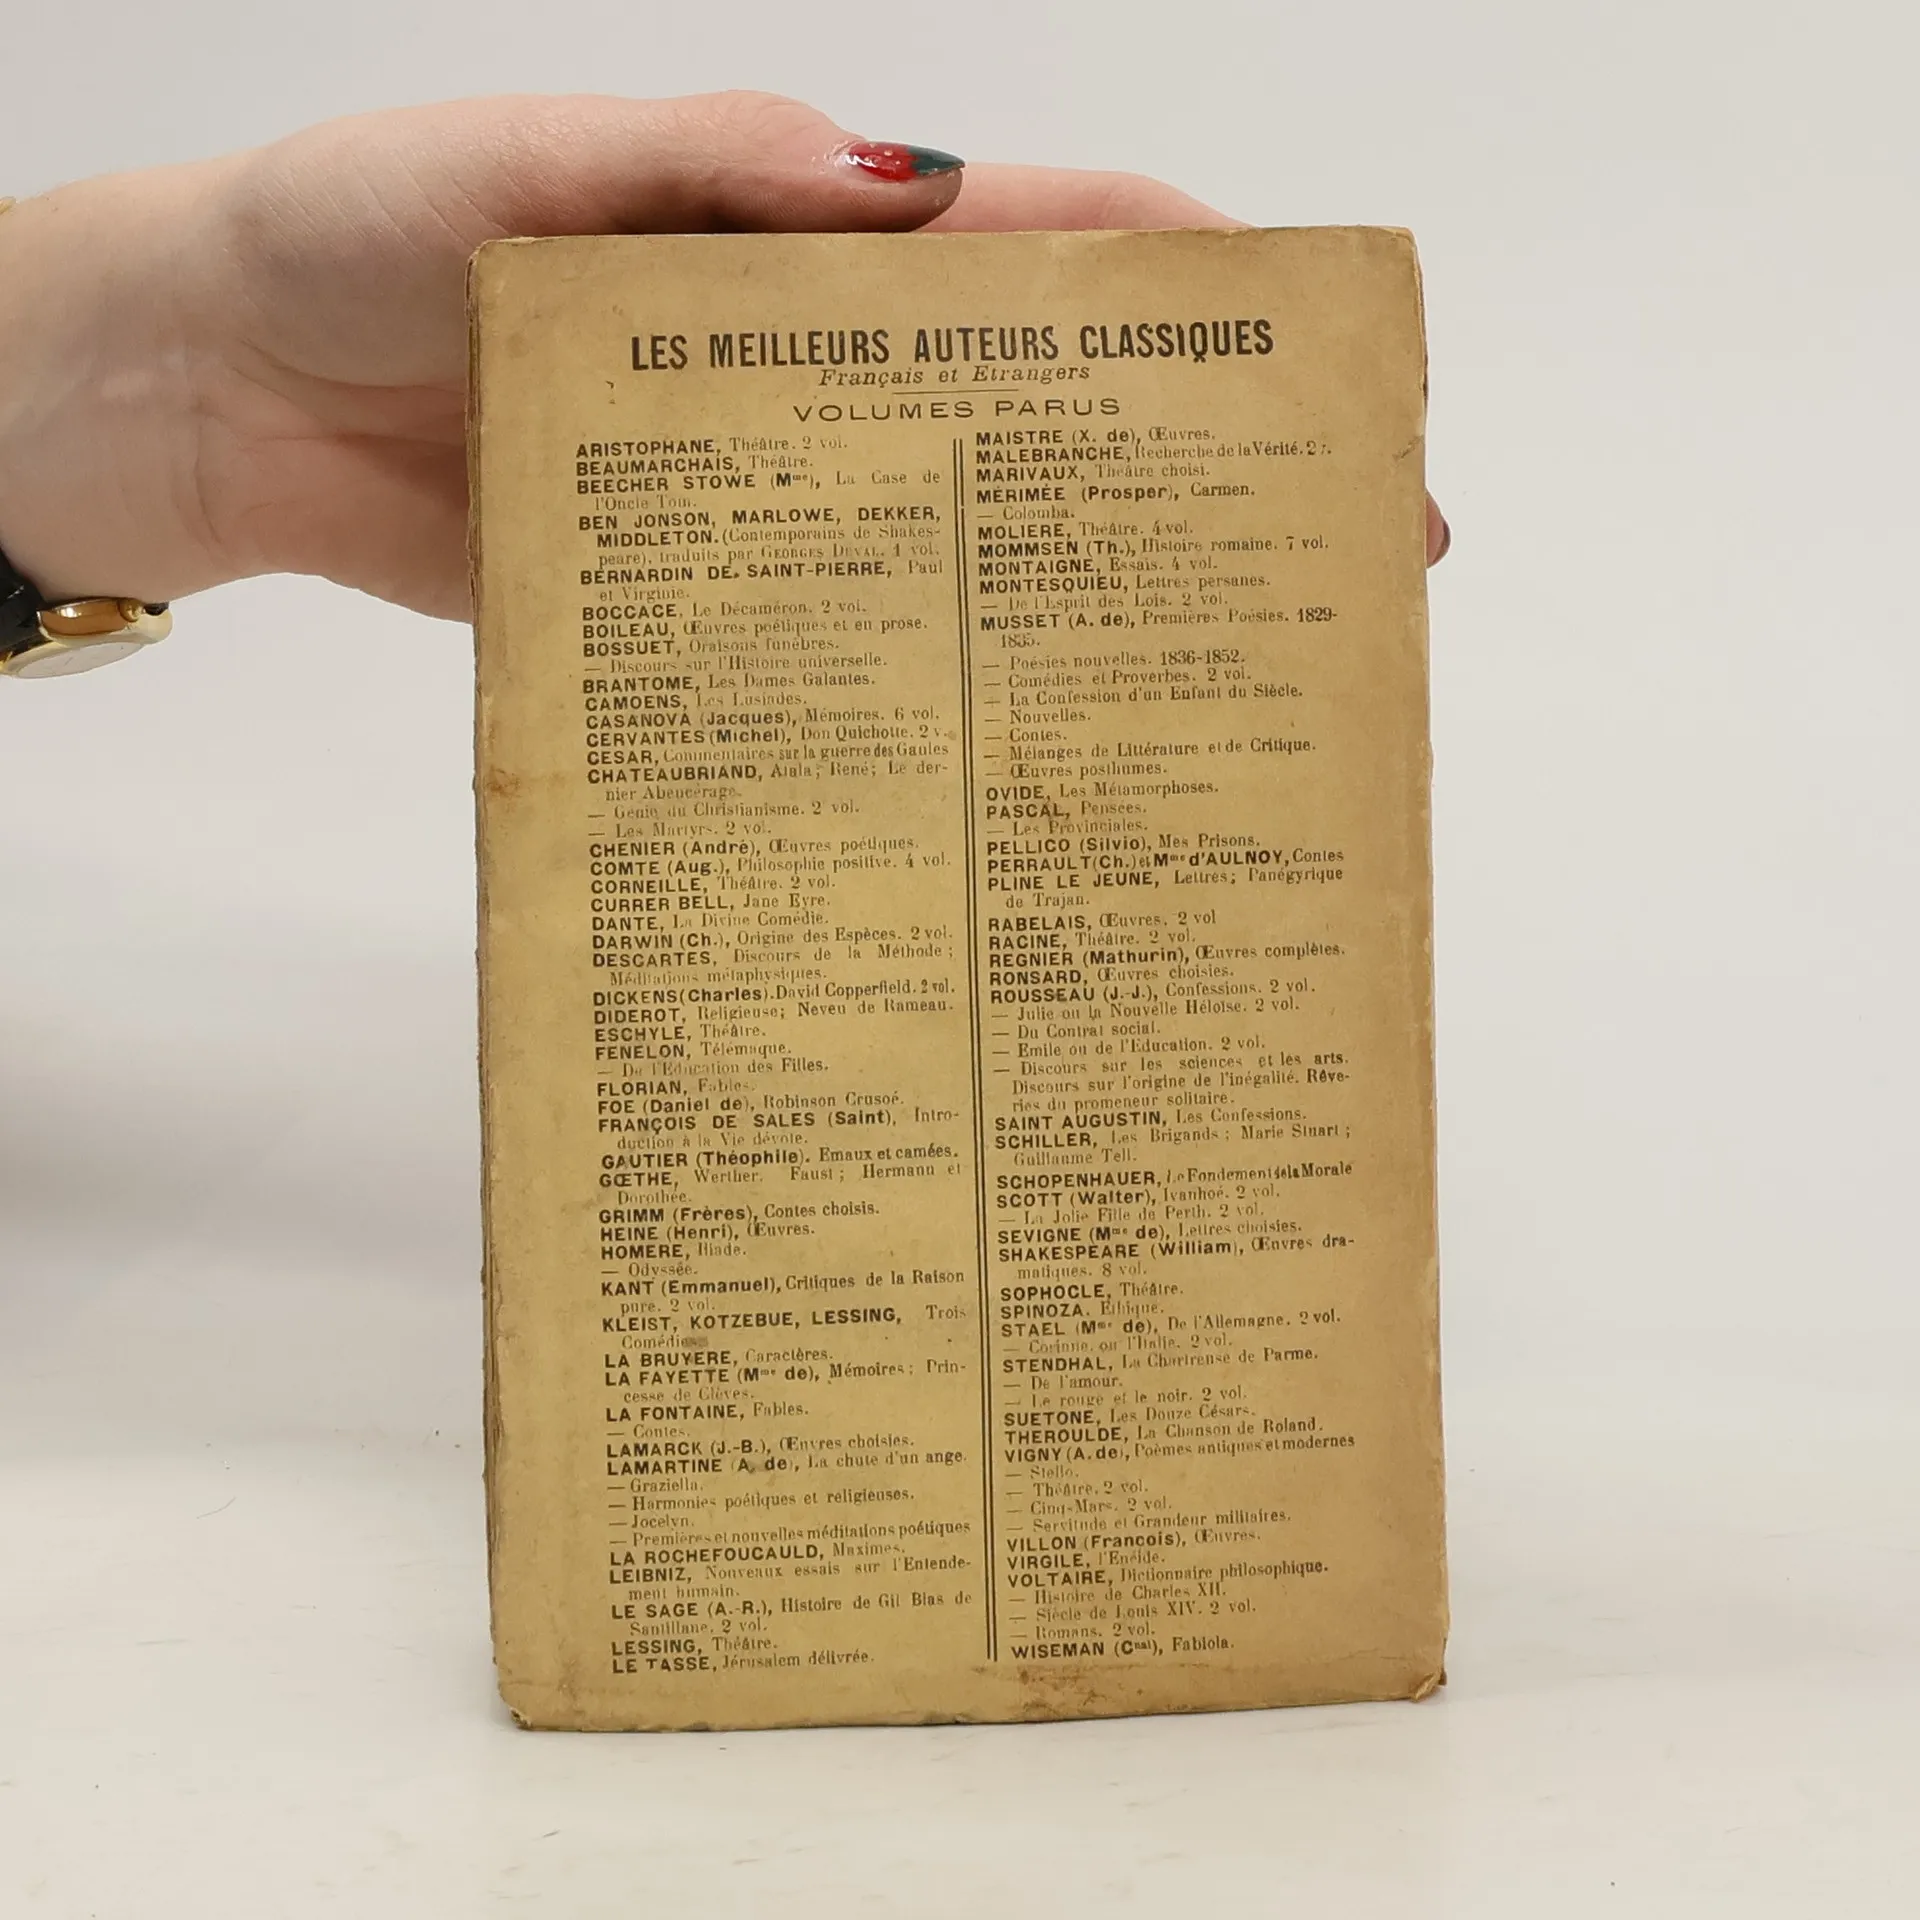 LES MEILLEURS AUTEURS CLASSIQUES
Français et Etrangers
VOLUMES PARUS
ARISTOPHANE, Théâtre. 2 vol.
BEAUMARCHAIS, Théâtre.
BEECHER STOWE (Mme), La Case de
l'Oncle Tom.
BEN JONSON, MARLOWE, DEKKER,
MIDDLETON. (Contemporains de Shakes-
peare), traduits par GEORGES DUVAL. 1 vol.
BERNARDIN DE SAINT-PIERRE, Paul
et Virginie.
BOCCACE, Le Décaméron. 2 vol.
BOILEAU, Œuvres poétiques et en prose.
BOSSUET, Oraisons funèbres.
— Discours sur l'Histoire universelle.
BRANTOME, Les Dames Galantes.
CAMOENS, Les Lusiades.
CASANOVA (Jacques), Mémoires. 6 vol.
CERVANTES (Michel), Don Quichotte. 2 v.
CESAR, Commentaires sur la guerre des Gaules
CHATEAUBRIAND, Atala; René; Le der-
nier Abencérage.
— Génie du Christianisme. 2 vol.
— Les Martyrs. 2 vol.
CHENIER (André), Œuvres poétiques.
COMTE (Aug.), Philosophie positive. 4 vol.
CORNEILLE, Théâtre. 2 vol.
CURRER BELL, Jane Eyre.
DANTE, La Divine Comédie.
DARWIN (Ch.), Origine des Espèces. 2 vol.
DESCARTES, Discours de la Méthode;
Méditations métaphysiques.
DICKENS (Charles). David Copperfield. 2 vol.
DIDEROT, Religieuse; Neveu de Rameau.
ESCHYLE, Théâtre.
FENELON, Télémaque.
— De l'Education des Filles.
FLORIAN, Fables.
FOE (Daniel de), Robinson Crusoé.
FRANÇOIS DE SALES (Saint), Intro-
duction à la Vie dévote.
GAUTIER (Théophile). Emaux et camées.
GŒTHE, Werther. Faust; Hermann et
Dorothée.
GRIMM (Frères), Contes choisis.
HEINE (Henri), Œuvres.
HOMERE, Iliade.
— Odyssée.
KANT (Emmanuel), Critiques de la Raison
pure. 2 vol.
KLEIST, KOTZEBUE, LESSING, Trois
Comédies
LA BRUYERE, Caractères.
LA FAYETTE (Mme de), Mémoires; Prin-
cesse de Clèves.
LA FONTAINE, Fables.
— Contes.
LAMARCK (J.-B.), Œuvres choisies.
LAMARTINE (A. de), La chute d'un ange.
— Graziella.
— Harmonies poétiques et religieuses.
— Jocelyn.
— Premières et nouvelles méditations poétiques
LA ROCHEFOUCAULD, Maximes.
LEIBNIZ, Nouveaux essais sur l'Entende-
ment humain.
LE SAGE (A.-R.), Histoire de Gil Blas de
Santillane. 2 vol.
LESSING, Théâtre.
LE TASSE, Jérusalem délivrée.
MAISTRE (X. de), Œuvres.
MALEBRANCHE, Recherche de la Vérité. 2 v.
MARIVAUX, Théâtre choisi.
MÉRIMÉE (Prosper), Carmen.
— Colomba.
MOLIERE, Théâtre. 4 vol.
MOMMSEN (Th.), Histoire romaine. 7 vol.
MONTAIGNE, Essais. 4 vol.
MONTESQUIEU, Lettres persanes.
— De l'Esprit des Lois. 2 vol.
MUSSET (A. de), Premières Poésies. 1829-
1835.
— Poésies nouvelles. 1836-1852.
— Comédies et Proverbes. 2 vol.
— La Confession d'un Enfant du Siècle.
— Nouvelles.
— Contes.
— Mélanges de Littérature et de Critique.
— Œuvres posthumes.
OVIDE, Les Métamorphoses.
PASCAL, Pensées.
— Les Provinciales.
PELLICO (Silvio), Mes Prisons.
PERRAULT (Ch.) et Mme d'AULNOY, Contes
PLINE LE JEUNE, Lettres; Panégyrique
de Trajan.
RABELAIS, Œuvres. 2 vol
RACINE, Théâtre. 2 vol.
REGNIER (Mathurin), Œuvres complètes.
RONSARD, Œuvres choisies.
ROUSSEAU (J.-J.), Confessions. 2 vol.
— Julie ou la Nouvelle Héloïse. 2 vol.
— Du Contrat social.
— Emile ou de l'Education. 2 vol.
— Discours sur les sciences et les arts.
Discours sur l'origine de l'inégalité. Rêve-
ries du promeneur solitaire.
SAINT AUGUSTIN, Les Confessions.
SCHILLER, Les Brigands; Marie Stuart;
Guillaume Tell.
SCHOPENHAUER, Le Fondement de la Morale
SCOTT (Walter), Ivanhoé. 2 vol.
— La Jolie Fille de Perth. 2 vol.
SEVIGNE (Mme de), Lettres choisies.
SHAKESPEARE (William), Œuvres dra-
matiques. 8 vol.
SOPHOCLE, Théâtre.
SPINOZA. Ethique.
STAEL (Mme de), De l'Allemagne. 2 vol.
— Corinne ou l'Italie. 2 vol.
STENDHAL, La Chartreuse de Parme.
— De l'amour.
— Le rouge et le noir. 2 vol.
SUETONE, Les Douze Césars.
THEROULDE, La Chanson de Roland.
VIGNY (A. de), Poèmes antiques et modernes
— Stello.
— Théâtre. 2 vol.
— Cinq-Mars. 2 vol.
— Servitude et Grandeur militaires.
VILLON (François), Œuvres.
VIRGILE, l'Enéide.
VOLTAIRE, Dictionnaire philosophique.
— Histoire de Charles XII.
— Siècle de Louis XIV. 2 vol.
— Romans. 2 vol.
WISEMAN (Cnal), Fabiola.